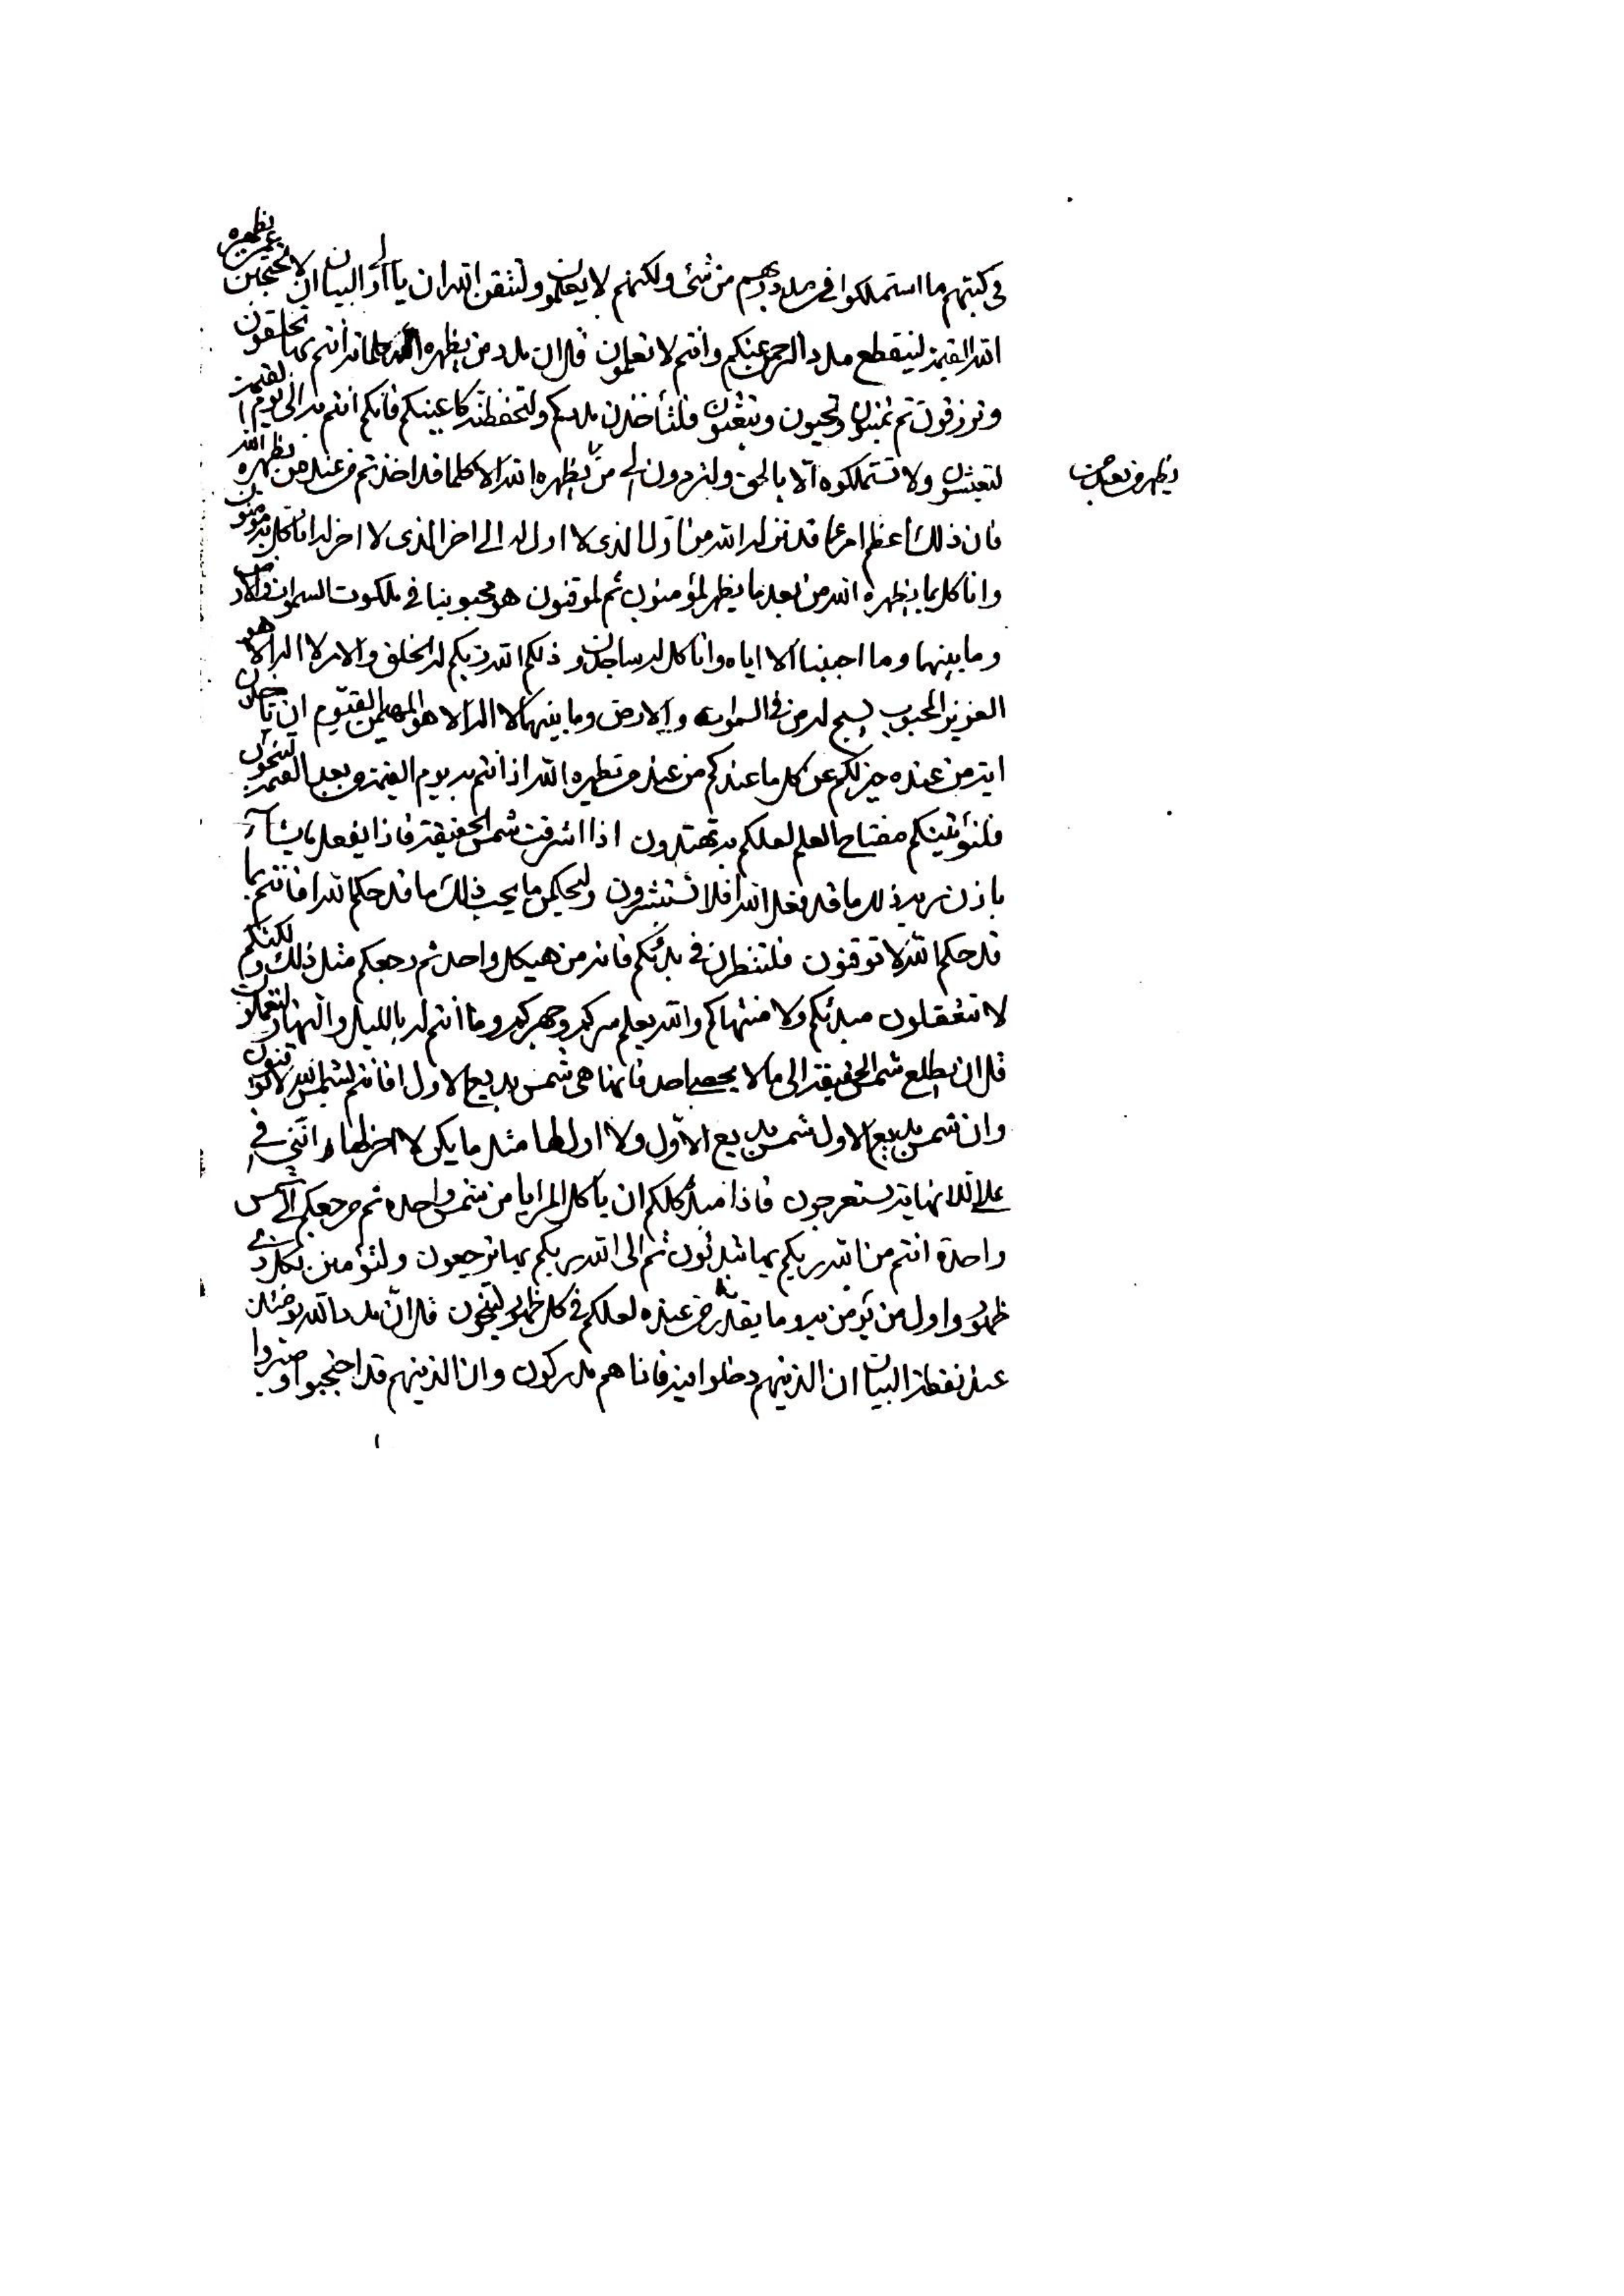 في كتبهم ما استملكوا في مداد ربهم من شيء ولكنهم لا يعلمون ولتتقن الله ان يا اولي البيان ان لا تحتجبن عمن يظهره
الله القيمة لينقطع مداد الرحمن عنكم وانتم لا تعلمون قل ان مداد من يظهره الله انتم بها تخلقون
وترزقون ثم تميتون وتحيون وتبعثون فلتأخذن مدادكم ولتحفظنه كاعينكم فانكم انتم به الى يوم القيمة
لتعيشون ولا تستملكوه الا بالحق ولتردون الى من يظهره الله الا كلما قد اخذتم من عند من يظهره الله
فان ذلك اعظم امر قد نزله الله من اول الذي لا اول له الى اخر الذي لا اخر له انا كل به مؤمنون
وانا كل بما يظهره الله من بعد ما يظهر لمؤمنون ثم لموقنون هو محبوبنا في ملكوت السموات والارض
وما بينهما وما احببنا الا اياه وانا كل له ساجدون ذلكم الله ربكم له الخلق والامر لا اله الا هو
العزيز المحبوب يسبح له من في السموات والارض وما بينهما لا اله الا هو المهيمن القيوم ان تأخذن
اية من عنده خير لكم عن كل ما عندكم من عند من يظهره الله اذ انتم به يوم القيمة وبعد القيمة لتنجون
فلنؤتينكم مفتاح العلم لعلكم به تهتدون اذا اشرقت شمس الحقيقة فاذا يفعل ما يشاء
باذن ربه ذلك ما قد فعل الله افلا تستشرون وليحكمن ما يحب ذلك ما قد حكم الله افانتم بما
قد حكم الله لا توقنون فلتنظرن في بدئكم فانه من هيكل واحد ثم رجعكم مثل ذلك ولكنكم
لا تتعقلون مبدئكم ولا منتهاكم والله يعلم سركم وجهركم وما انتم له بالليل والنهار لتعملون
قل ان يطلع شمس الحقيقة الى ما لا يحصي احد فانها هي شمس بديع الاول افانتم بشمس الله لا توقنون
وان شمس بديع الاول شمس بديع الاول ولا اول لها مثل ما يكن لا اخر لها وانني في
علا لا نهاية يستعرجون فاذا مبدء كلكم ان يا كل المرايا من شمس واحدة ثم مرجعكم الى شمس
واحدة انتم من الله ربكم بها تبدئون ثم الى الله ربكم بها ترجعون ولتؤمنن بكل
ظهور واول من يؤمن به وما يقدر من عنده لعلكم في كل ظهور لتنجون قل ان مداد الله يومئذ
عند نقطة البيان ان الذينهم دخلوا فيه فانا هم مدركون وان الذينهم قد احتجبوا وصبروا
يظهر من بعد